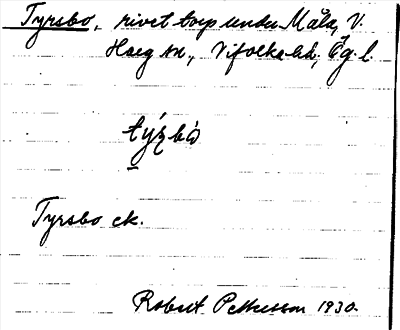 Tyrsbo, rivet torp under Måla, V.
Harg sn., Vifolka hd., Ög. l.
týʀ̨bò
Tyrsbo ek.
Robert Pettersson 1930.